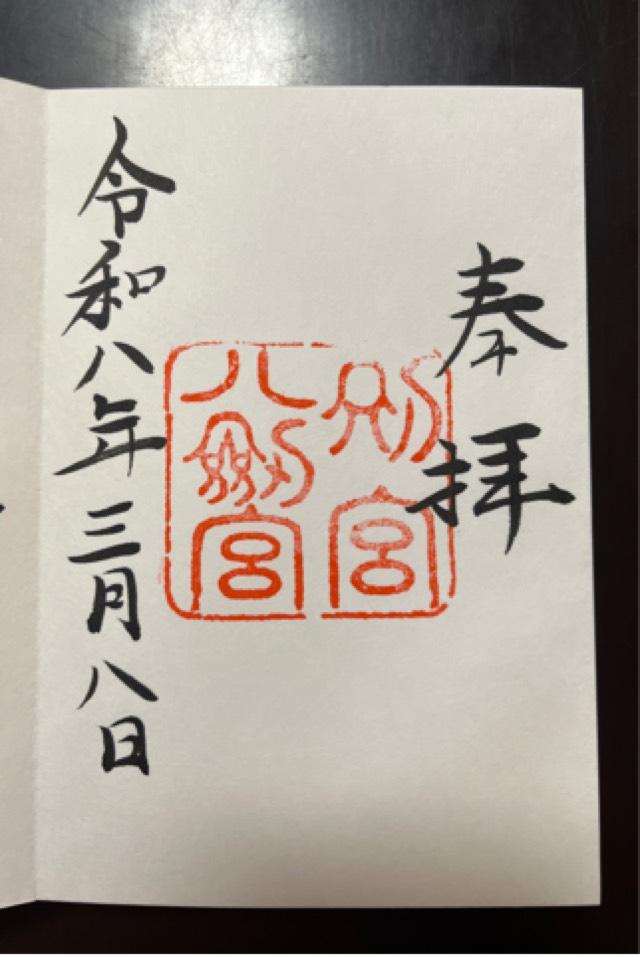 奉拝
別宮
八剣宮
令和八年三月八日